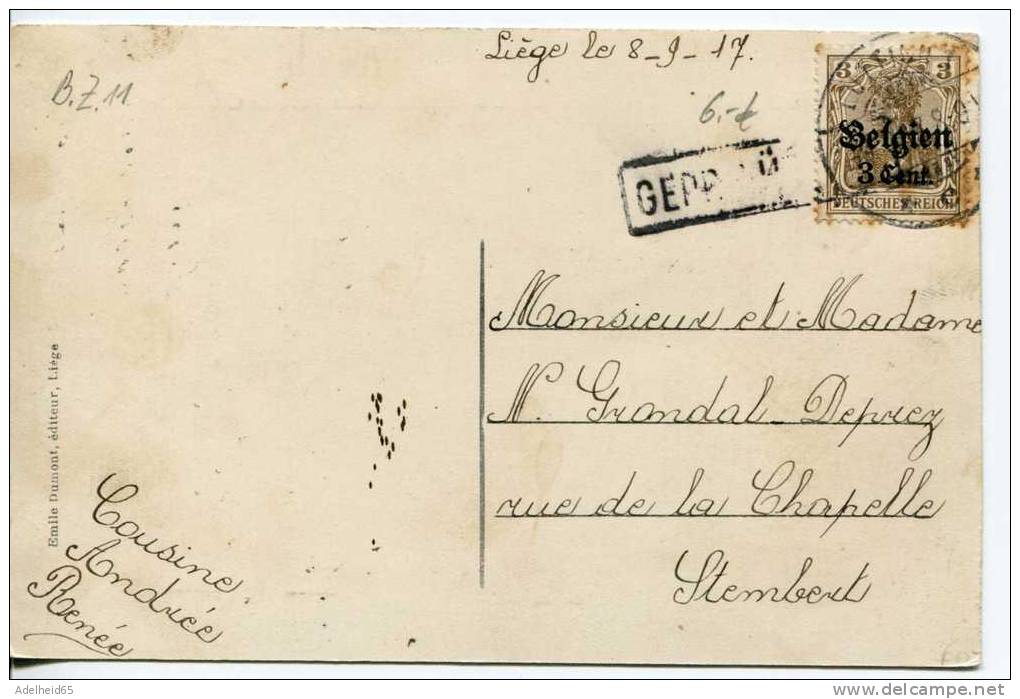 Liège le 8-9-17.
B.Z.11
6.-
3 3
Belgien
3 Cent.
DEUTSCHES REICH
Monsieur et Madame
N. Grandal-Deprez
rue de la Chapelle
Stembert
Emile Dumont, éditeur, Liège
Cousine
Andrée
Renée
Adelheid65
delcampe.net